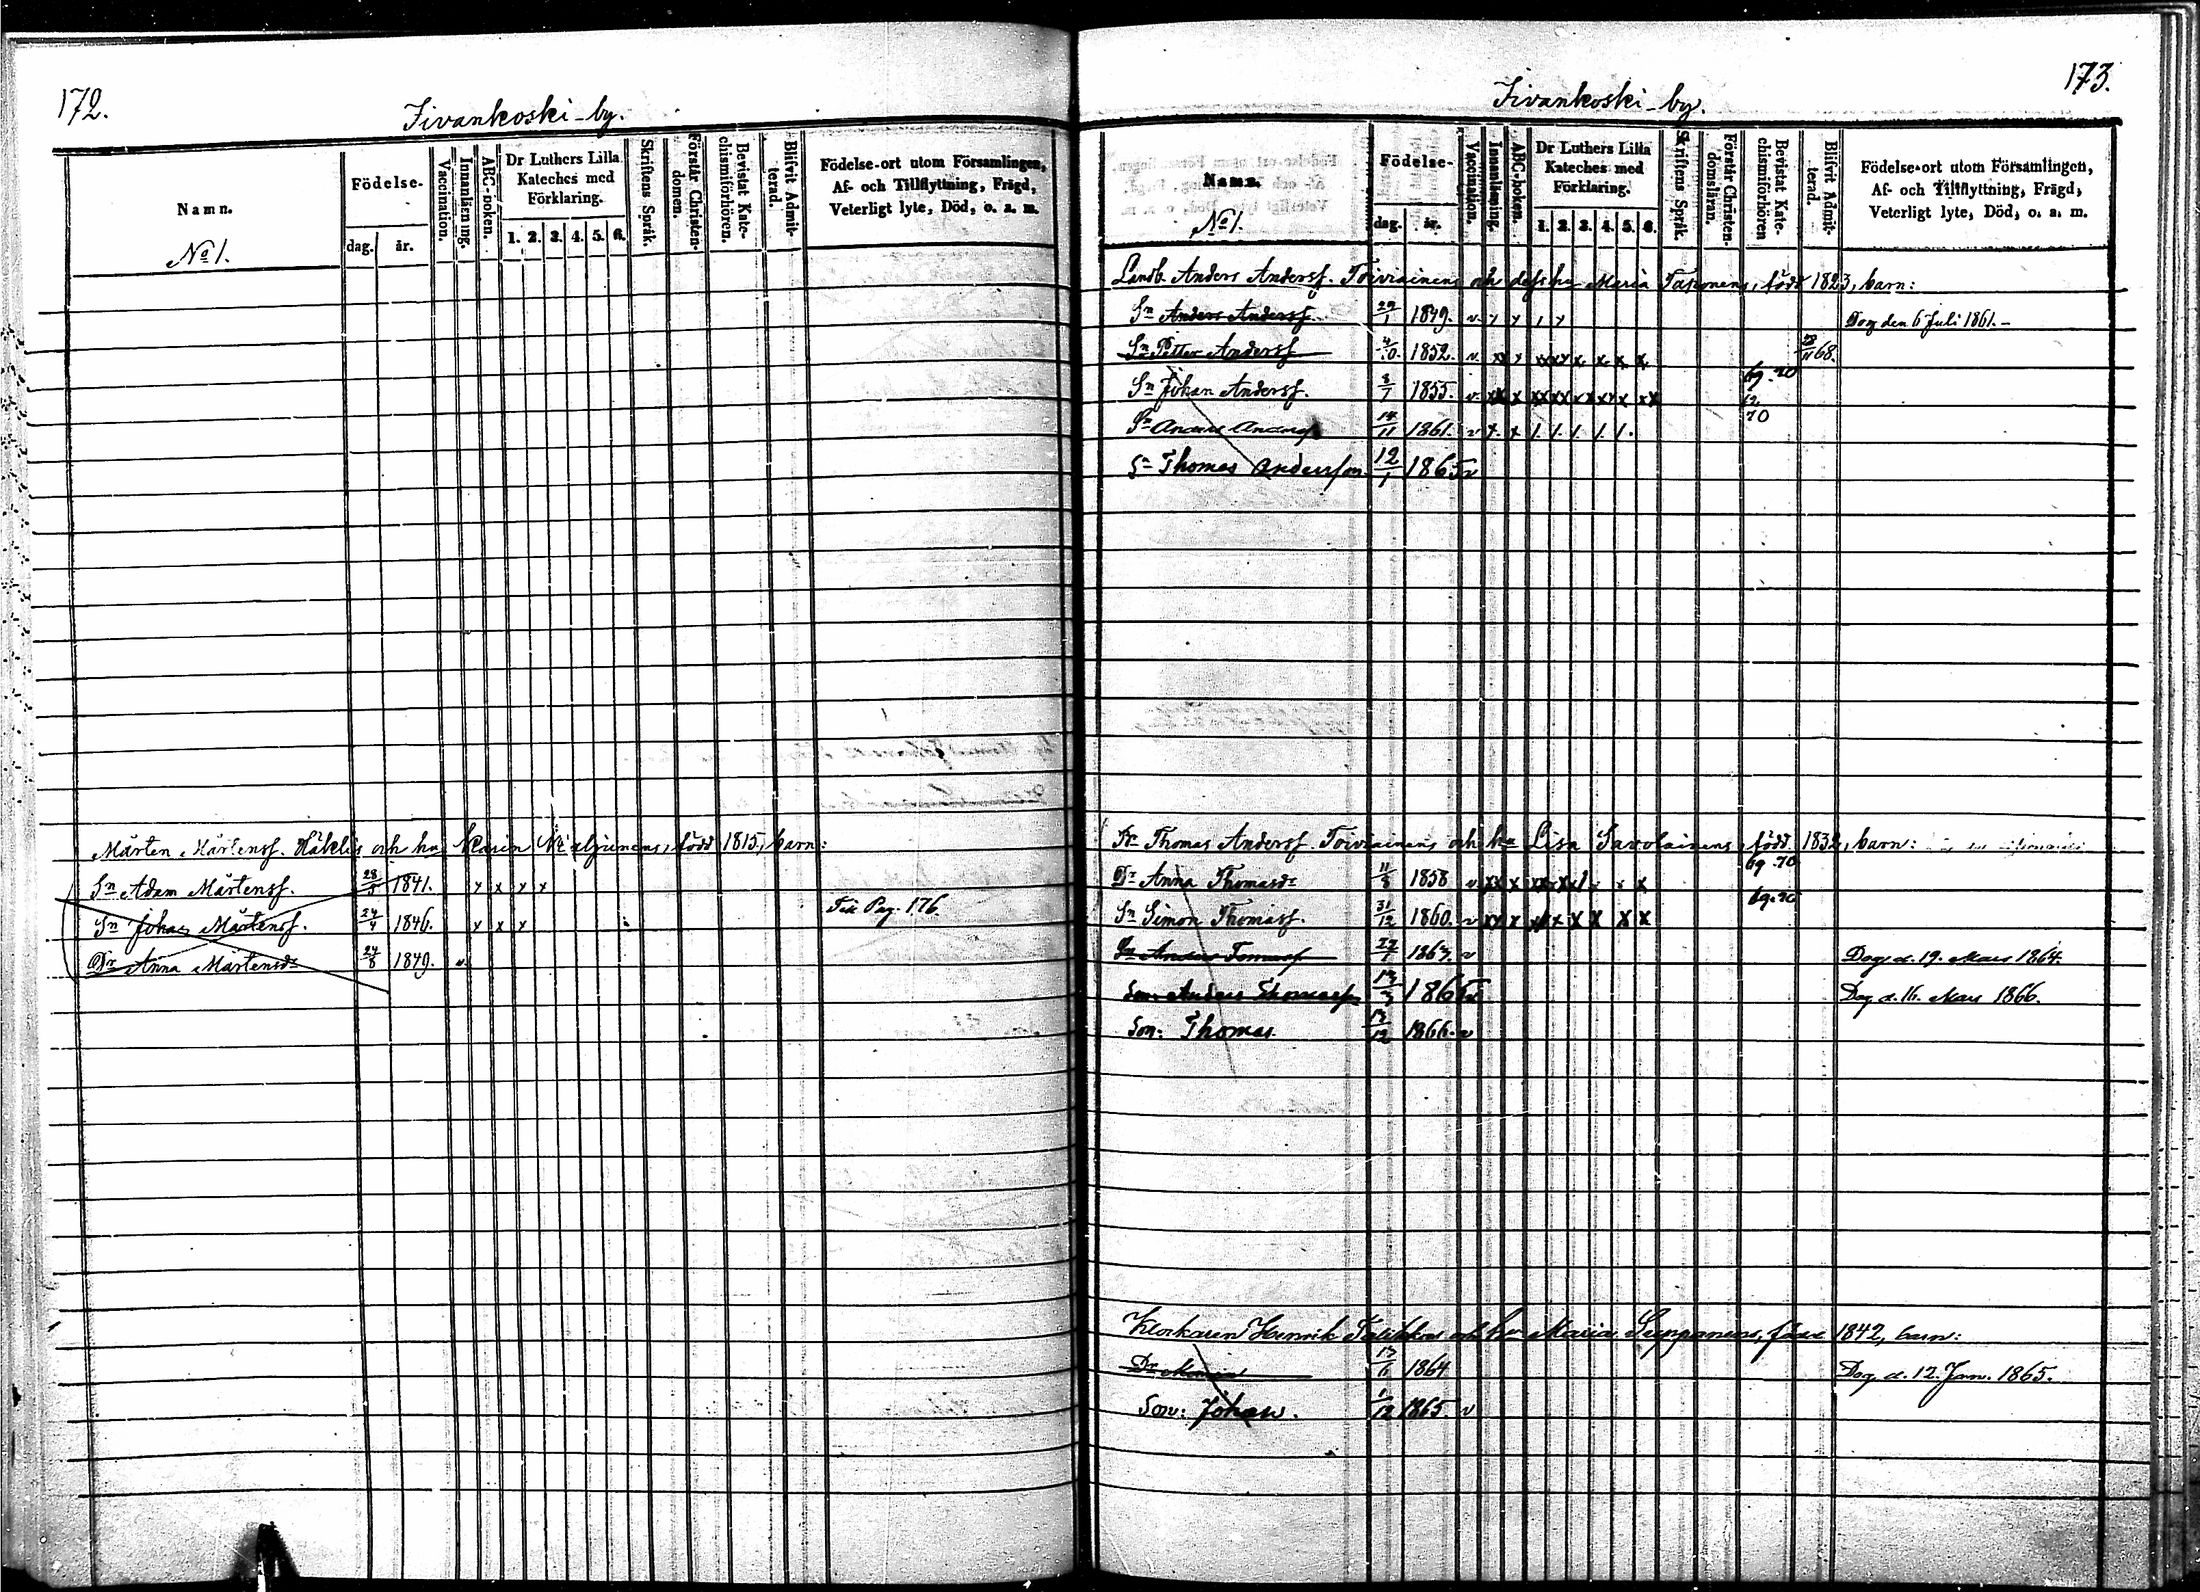 172.
Iivankoski-by.
Namn.
No 1.
Födelse-
dag. år.
Vaccination.
Innanläsning.
ABC-boken.
Dr Luthers Lilla Kateches med Förklaring.
1. 2. 3. 4. 5. 6.
Skriftens Språk.
Förstår Christendomen.
Bevistat Katechismiförhören.
Blifvit Admitterad.
Födelse-ort utom Församlingen,
Af- och Tillflyttning, Frägd,
Veterligt lyte, Död, o. s. m.
Mårten Mårtensf. och hu Karin född 1815, barn:
Sn Adam Mårtensf. 28/5 1841. x x x x
Sn Johan Mårtensf. 24/4 1846. x x x Till Pag. 176.
Dr Anna Mårtensdr 24/8 1849. v.
173.
Iivankoski-by.
Namn.
No 1.
Födelse-
dag. år.
Vaccination.
Innanläsning.
ABC-boken.
Dr Luthers Lilla Kateches med Förklaring.
1. 2. 3. 4. 5. 6.
Skriftens Språk.
Förstår Christendomsläran.
Bevistat Katechismiförhören
Blifvit Admitterad.
Födelse-ort utom Församlingen,
Af- och Tillflyttning, Frägd,
Veterligt lyte, Död, o. s. m.
Landb. Anders Andersf. Toiviainens och dess hu Maria född 1823, barn:
Sn Anders Andersf. 29/1 1849. v. x x / x Dog den 6 Juli 1861.-
Sn Petter Andersf 4/10 1852. v. xx x xx x x x x x 68.
Sn Johan Andersf. 8/7 1855. v. xx x xx xx xx xx x xx 69.70
Sn Anders Andersf 14/11 1861. v x. x /. /. /. /. /. 70
Sn Thomas Andersson 12/1 1865 v
Br Thomas Andersf. Toiviainens och hu Lisa Savolainens, född 1832, barn:
Dr Anna Thomasdr 11/8 1858 v xx x 69.70
Sn Simon Thomasf. 31/12 1860. v xx x x x x x x x 69.70
Sn Anders Tomasf 27/7 1863. v Dog d. 19. Mars 1864.
Son: Anders Thomasf 13/3 1865 v Dog d. 16. Mars 1866.
Son: Thomas 13/12 1866. v
Klockaren Henrik och hu Maria Seppänens, född 1842, barn:
Dr Maria 13/11 1864 Dog d. 12. Jan. 1865.
Son: Johan. 1/12 1865. v